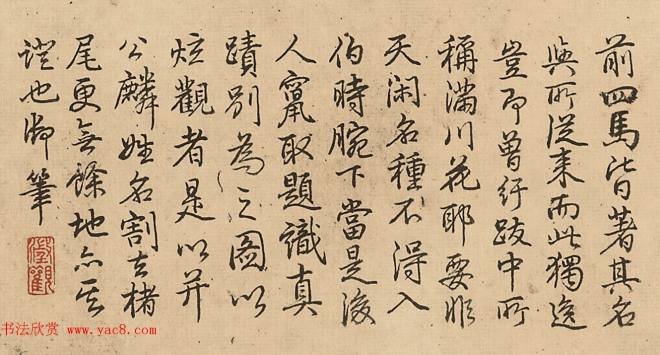 前四馬皆著其名
與所從来而此獨逸
豈即曽紆跋中所
稱滿川花耶要非
天閑名種不得入
伯時腕下當是後
人竄取題識真
蹟別為之圖以
炫觀者是以并
公麟姓名割去楮
尾更無餘地亦其
證也御筆
澂觀
书法欣赏 www.yac8.com